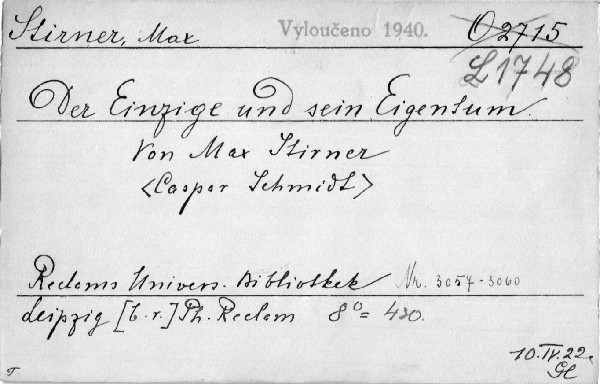 Stirner, Max Vyloučeno 1940. O 2715
L 1748
Der Einzige und sein Eigentum.
Von Max Stirner
<Caspar Schmidt>
Reclams Univers. Bibliothek Nr. 3057-3060
Leipzig [b. r.] Ph. Reclam 8° = 420.
10. IV. 22.
Gl
T